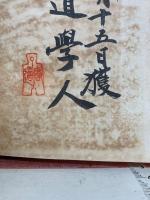 月十五日獲
道學人